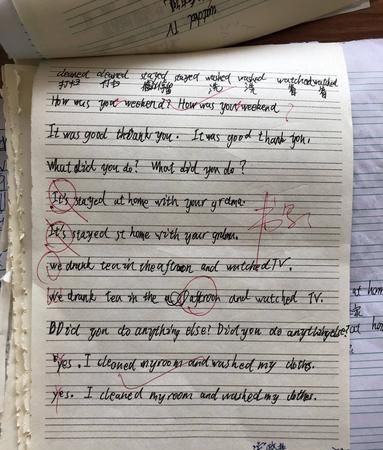 watched TV
cleaned cleaned stayed stayed washed washed watched watched
打扫 打扫 洗 洗 看 看
How was you weekend? How was your weekend?
It was good thank you. It was good thank you.
What did you do? What did you do?
It's stayed at home with your grdma.
It's stayed st home with your grdma.
we drunk tea in the aftroon and watched TV.
We drank tea in the aftroon and watched TV.
BDid you do anything else? Did you do anything else?
yes. I cleaned my room and washed my clothes.
yes. I cleaned my room and washed my clothes.